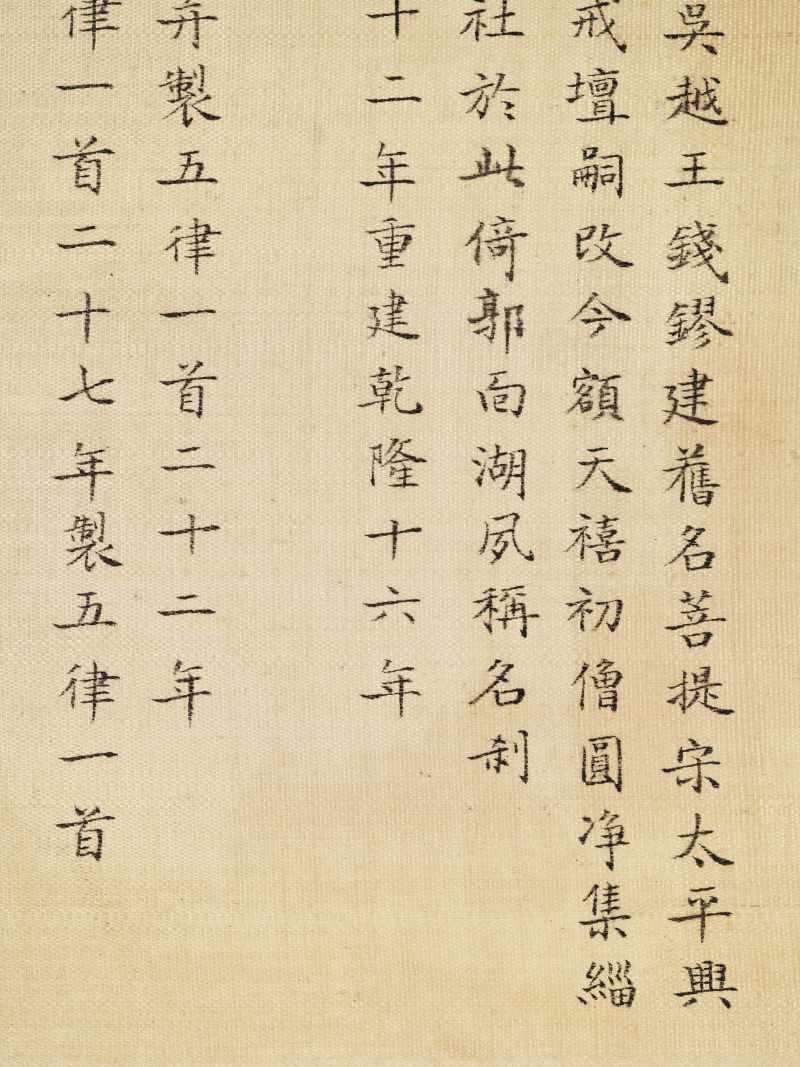 吳越王錢鏐建舊名菩提宋太平興
戒壇嗣改今額天禧初僧圓净集緇
社於此倚郭面湖夙稱名剎
十二年重建乾隆十六年
并製五律一首二十二年
律一首二十七年製五律一首